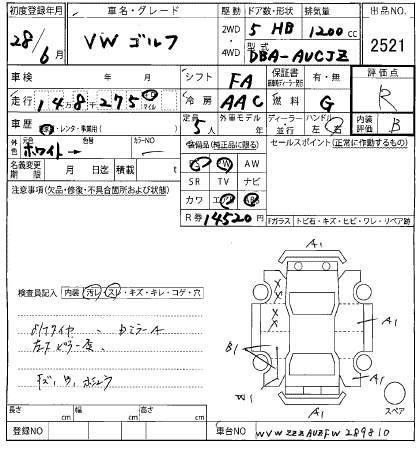 初度登録年月 車名・グレード 駆動 ドア数・形状 排気量 出品NO.
28/6月 VW ゴルフ 2WD・4WD 5 HB 1200cc 2521
型式 DBA-AUCJZ
車検 年 月 シフト FA 保証書 有・無 評価点 R
走行 14万8千275 キロ マイル 冷房 AAC 燃料 G
車歴 自家用・レンタ・事業用( ) 定員 5人 外車モデル 年 ディーラー・並行 ハンドル 左 右 内装評価 B
外色 元色 ホワイト → 色替 カラーNO
装備品(純正品に限る) セールスポイント(正常に作動するもの)
名義変更期限 月 日迄 積載 t
PS PW AW
SR TV ナビ
カワ エアB ABS
R券 14520円
注意事項(欠品・修復・不具合箇所および状態)
Fガラス トビ石・キズ・ヒビ・ワレ・リペア跡
検査員記入 内装 汚レ・スレ・キズ・キレ・コゲ・穴
A1
X X
X
A1
B1
W1
A1
A1
スペア
長さ cm 幅 cm 高さ cm
登録NO 車台NO WVWZZZAUZFW289810